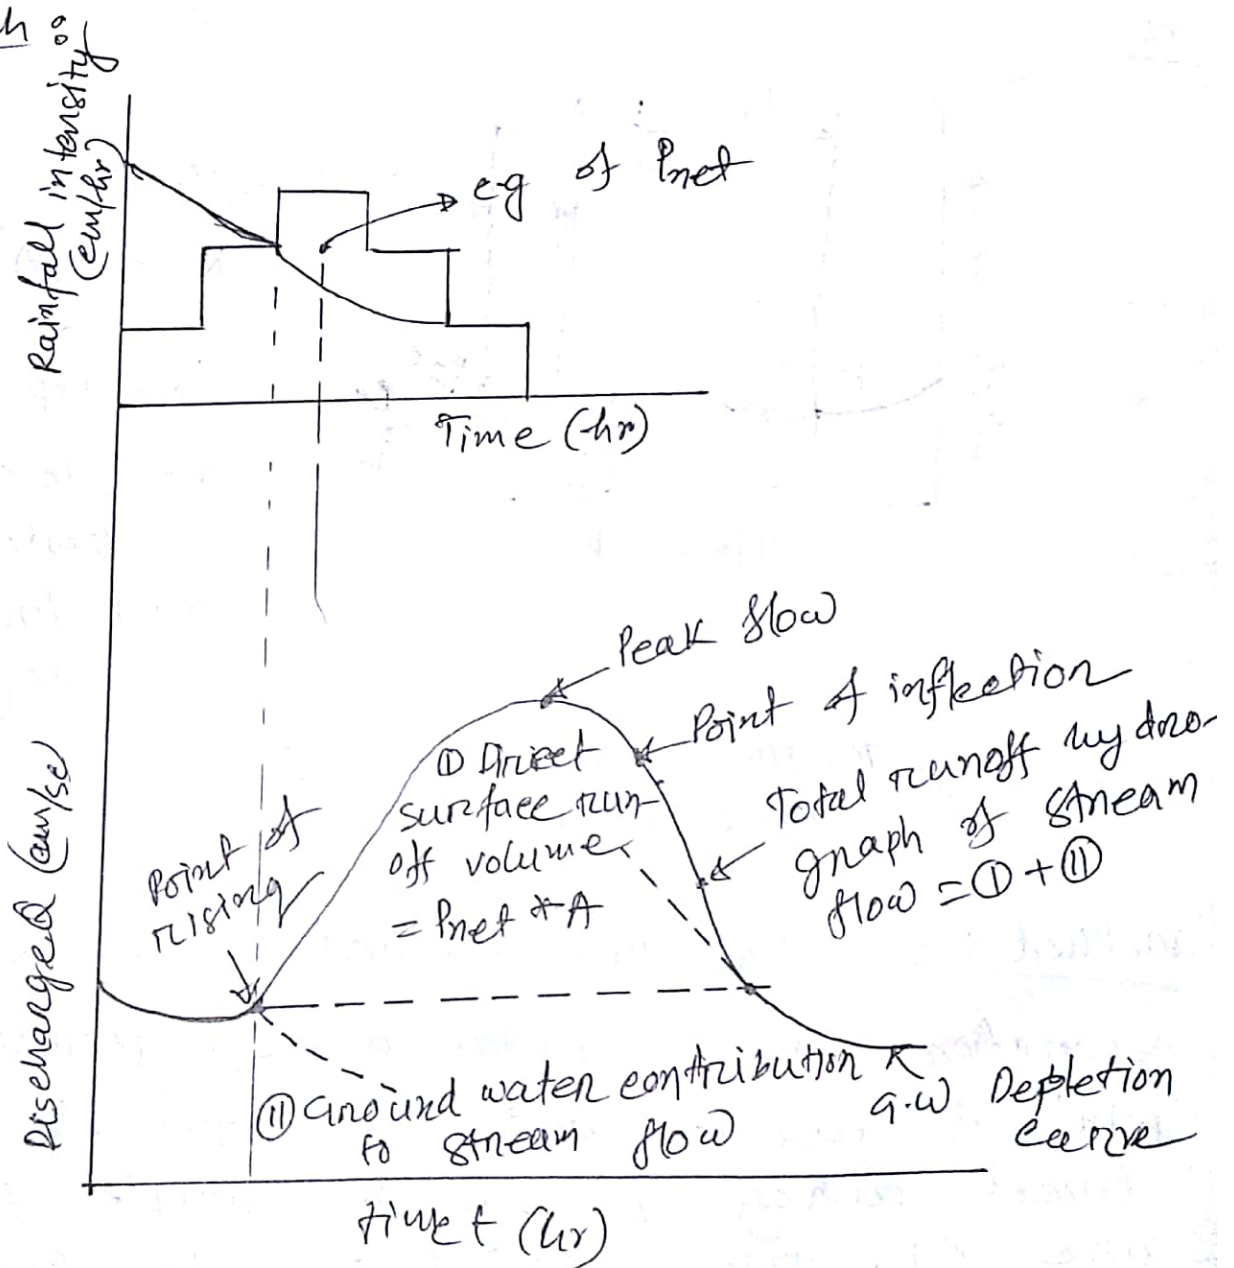 Rainfall intensity
(cm/hr)
e.g of Pnet
Time (hr)
Peak flow
Point of inflection
① Direct
surface run-
off volume
= Pnet * A
Total runoff hydro-
graph of stream
flow = ① + ⑪
Point of
rising
⑪ Ground water contribution
to stream flow
G.W Depletion
curve
Discharge Q
time t (hr)